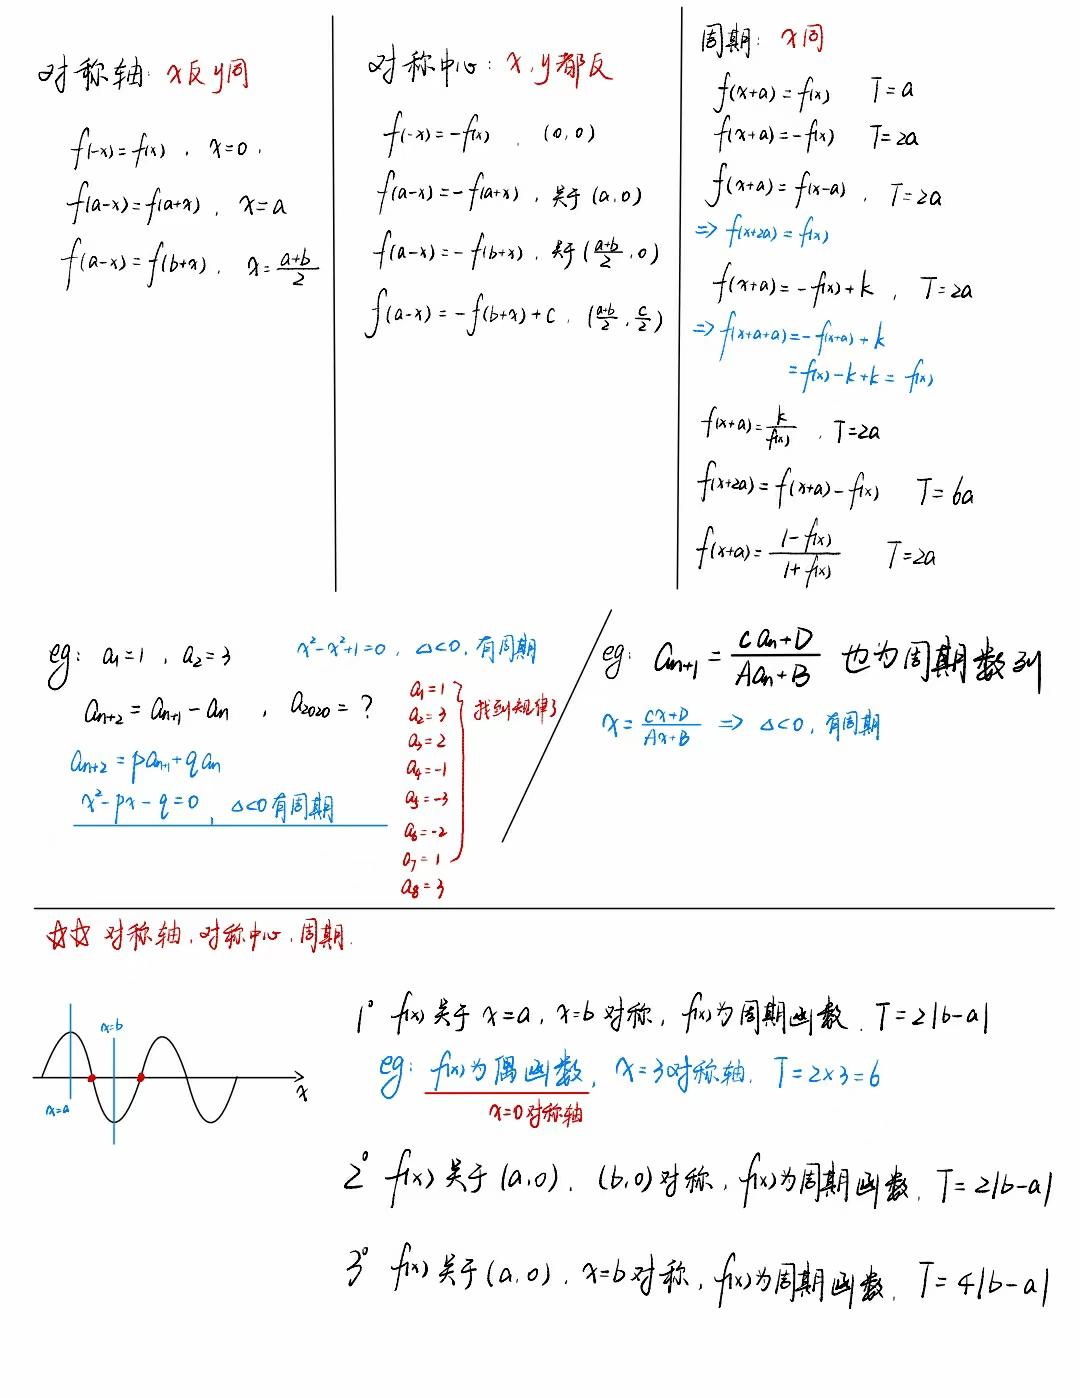 对称轴: x反y同
f(-x)=f(x), x=0.
f(a-x)=f(a+x), x=a
f(a-x)=f(b+x), x=\frac{a+b}{2}
对称中心: x,y都反
f(-x)=-f(x), (0,0)
f(a-x)=-f(a+x), 关于(a,0)
f(a-x)=-f(b+x), 关于(\frac{a+b}{2},0)
f(a-x)=-f(b+x)+c, (\frac{a+b}{2},\frac{c}{2})
周期: x同
f(x+a)=f(x) T=a
f(x+a)=-f(x) T=2a
f(x+a)=f(x-a), T=2a
=> f(x+2a)=f(x)
f(x+a)=-f(x)+k, T=2a
=> f(x+a+a)=-f(x+a)+k
=f(x)-k+k=f(x)
f(x+a)=\frac{k}{f(x)}, T=2a
f(x+2a)=f(x+a)-f(x) T=6a
f(x+a)=\frac{1-f(x)}{1+f(x)} T=2a
eg: a₁=1, a₂=3
x²-x²+1=0, Δ<0, 有周期
aₙ₊₂=aₙ₊₁-aₙ, a₂₀₂₀=?
aₙ₊₂=paₙ₊₁+qaₙ
x²-px-q=0, Δ<0有周期
a₁=1
a₂=3
a₃=2
a₄=-1
a₅=-3
a₆=-2
a₇=1
a₈=3
找到规律了
eg: aₙ₊₁=\frac{Caₙ+D}{Aaₙ+B} 也为周期数列
x=\frac{Cx+D}{Ax+B} => Δ<0, 有周期
☆☆ 对称轴, 对称中心, 周期.
x=b
x=a
x
1° f(x)关于x=a, x=b对称, f(x)为周期函数. T=2|b-a|
eg: f(x)为偶函数, x=3对称轴. T=2×3=6
x=0对称轴
2° f(x)关于(a,0), (b,0)对称, f(x)为周期函数. T=2|b-a|
3° f(x)关于(a,0), x=b对称, f(x)为周期函数. T=4|b-a|